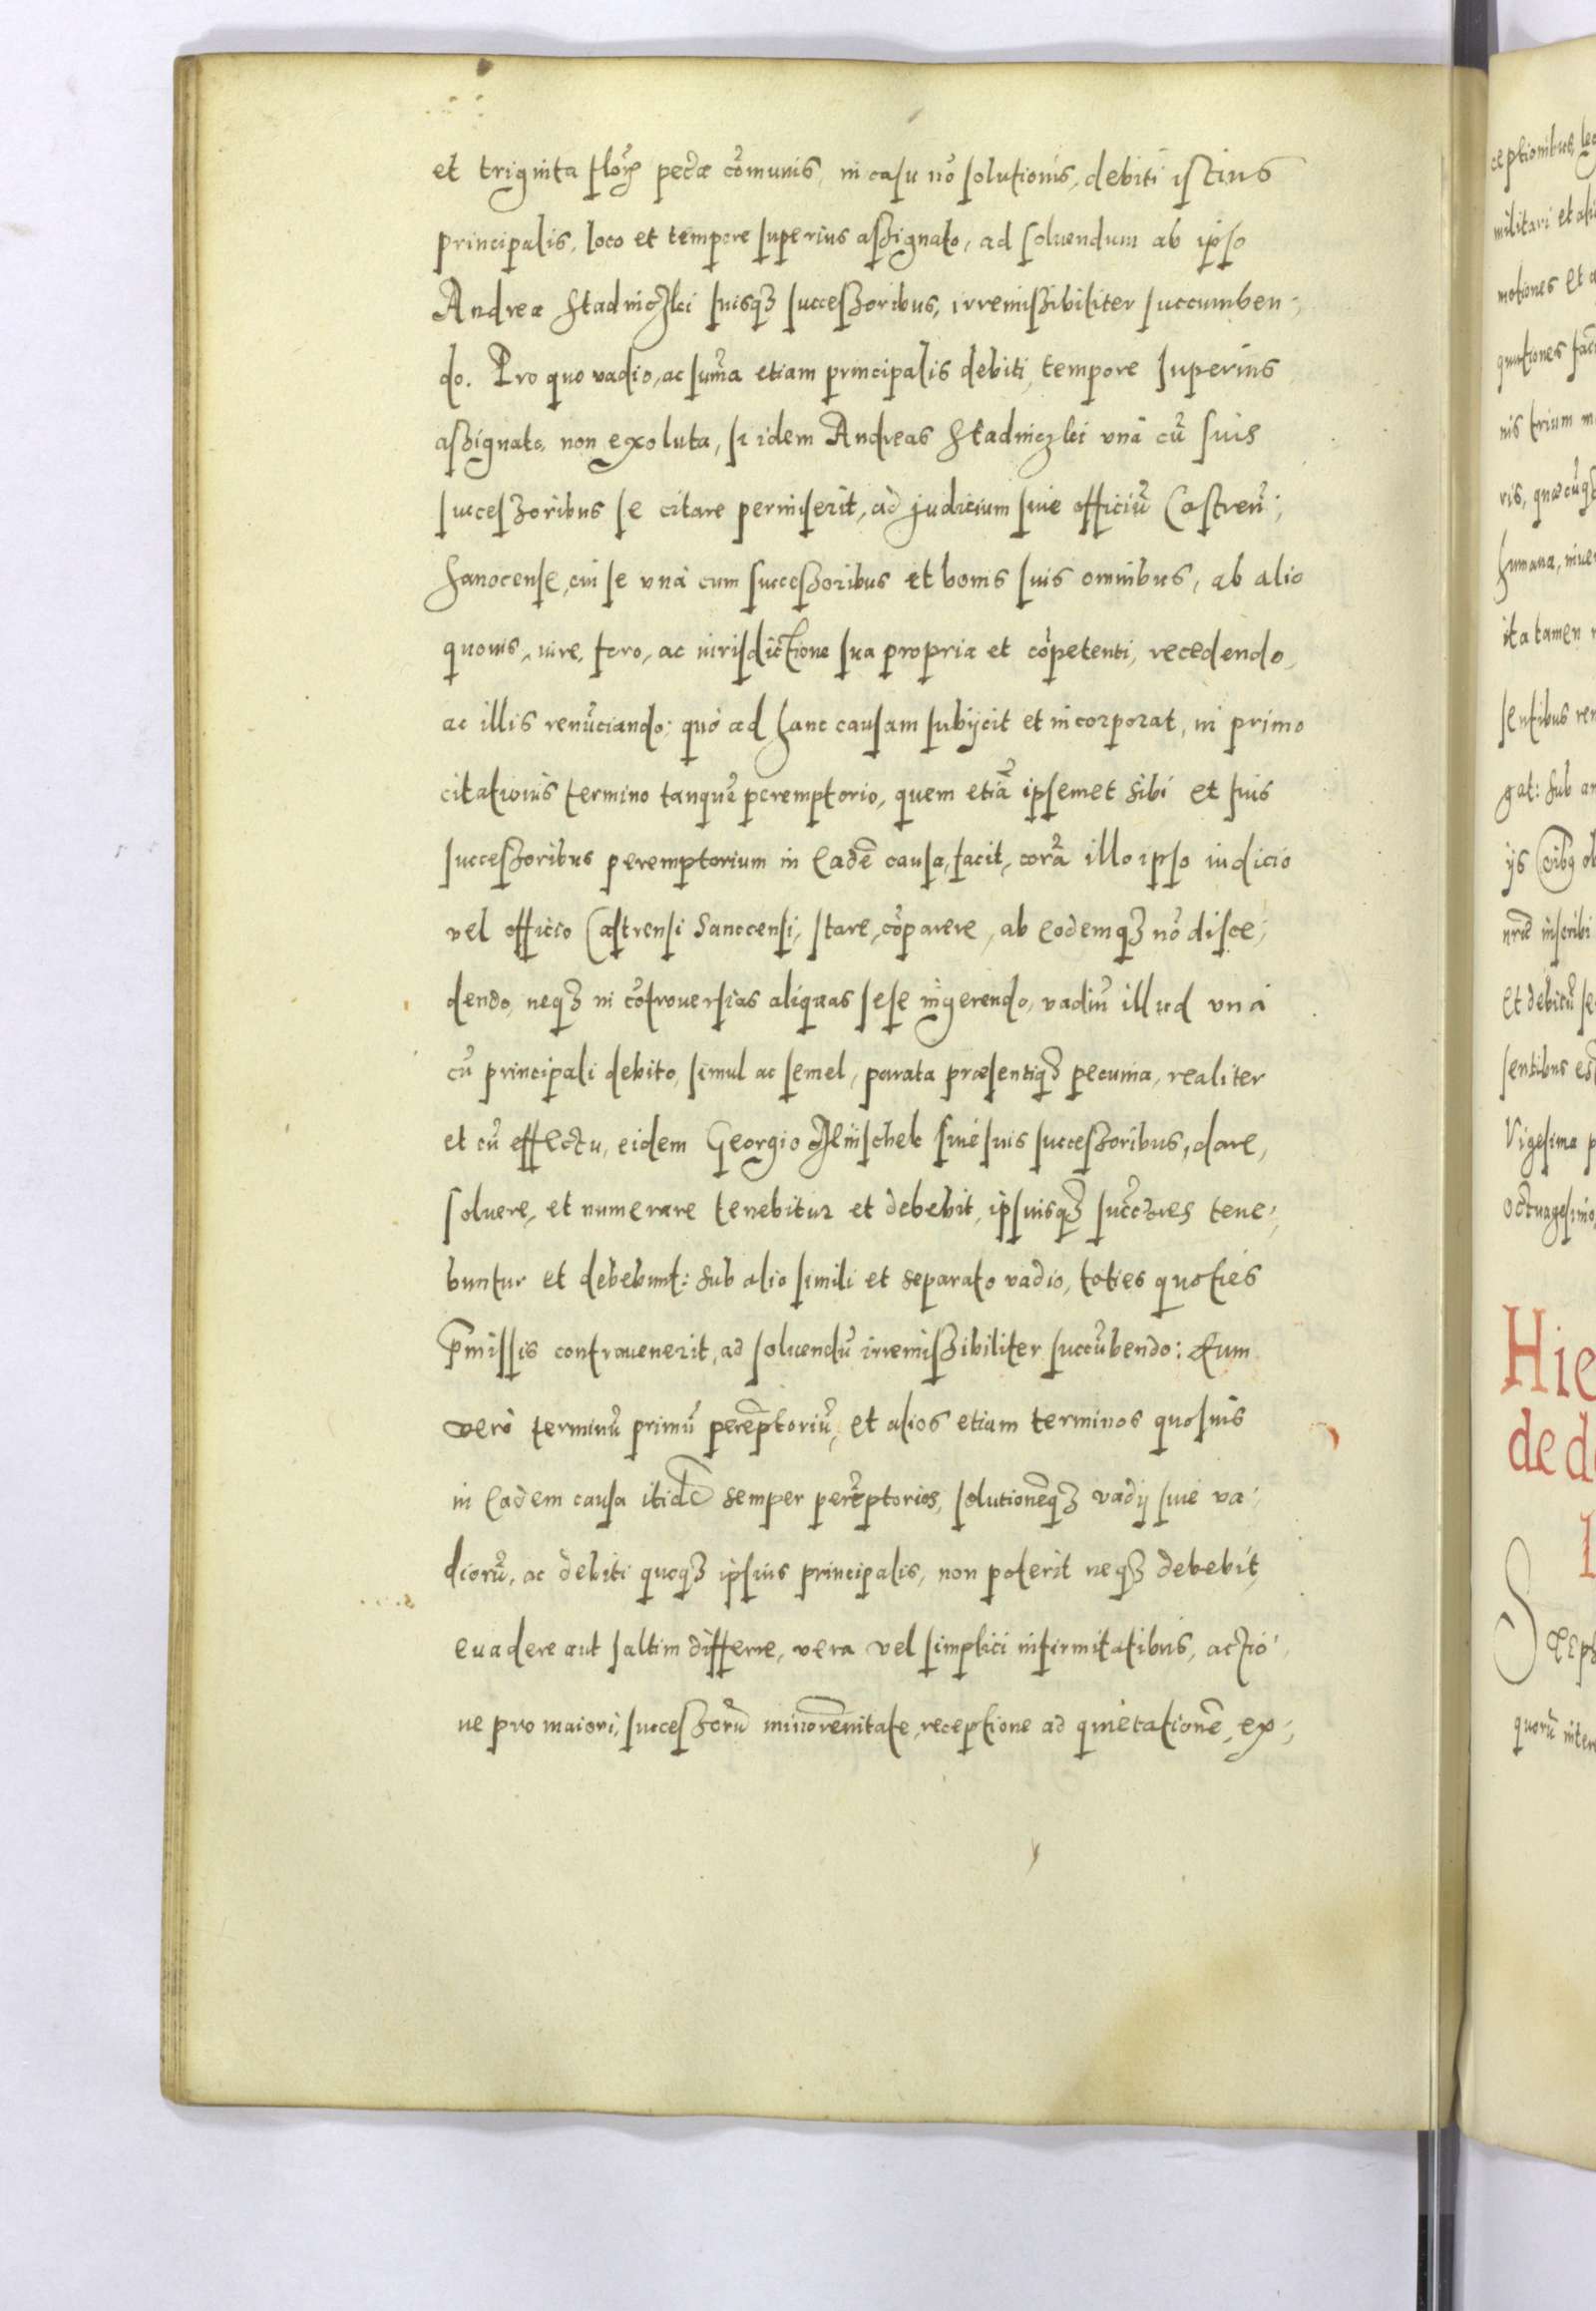 et triginta flor̃ pecȗ̃æ cõmunis, in casu nõ solutionis, debiti istius
principalis, loco et tempore superius assignato, ad soluendum ab ipso
Andrea Stadniczki suisqꝫ successoribus, irremissibiliter succumben-
do. Pro quo vadio, ac sum̃a etiam principalis debiti, tempore superius
assignato, non exoluta, si idem Andreas Stadniczki vnà cũ suis
successoribus se citare permiserit, ad judicium siue officiũ Castreñ,
Sanocense, cui se vnà cum successoribus et bonis suis omnibus, ab alio
quouis, iure, foro, ac iurisdictione sua propria et cõpetenti, recedendo,
ac illis renũciando: quò ad hanc causam subijcit et incorporat, in primo
citationis termino tanquẽ peremptorio, quem etiã ipsemet sibi et suis
successoribus peremptorium in eadẽ causa, facit, corã illo ipso iudicio
vel officio Castrensi Sanocensi, stare, cõparere, ab eodemqꝫ nõ disce-
dendo, neqꝫ in cõtrouersias aliquas sese ingerendo, vadiũ illud vnà
cũ principali debito, simul ac semel, parata præsentiqꝫ pecunia, realiter
et cũ effectu, eidem Georgio Mnischek siue suis successoribus, dare,
soluere, et numerare tenebitur et debebit, ipsiusqꝫ succ̃res tene-
buntur et debebunt: sub alio simili et separato vadio, toties quoties
p̃missis contrauenerit, ad soluendũ irremissibiliter succũbendo: Eum
verò terminũ primũ perẽptoriũ, et alios etiam terminos quosuis
in eadem causa itidẽ semper perẽptorios, solutionẽqꝫ vadij siue va-
diorũ, ac debiti quoqꝫ ipsius principalis, non poterit neqꝫ debebit,
euadere aut saltim differre, vera vel simplici infirmitatibus, actio-
ne pro maiori, successorũ minorennitate, receptione ad quietationẽ, ex-
ceptionibus,
militari et
motiones et
nis trium
humana,
ita tamen
sentibus
gat: sub
et debitũ
sentibus
Vigesima
octuagesimo
Hie
de d
quorũ